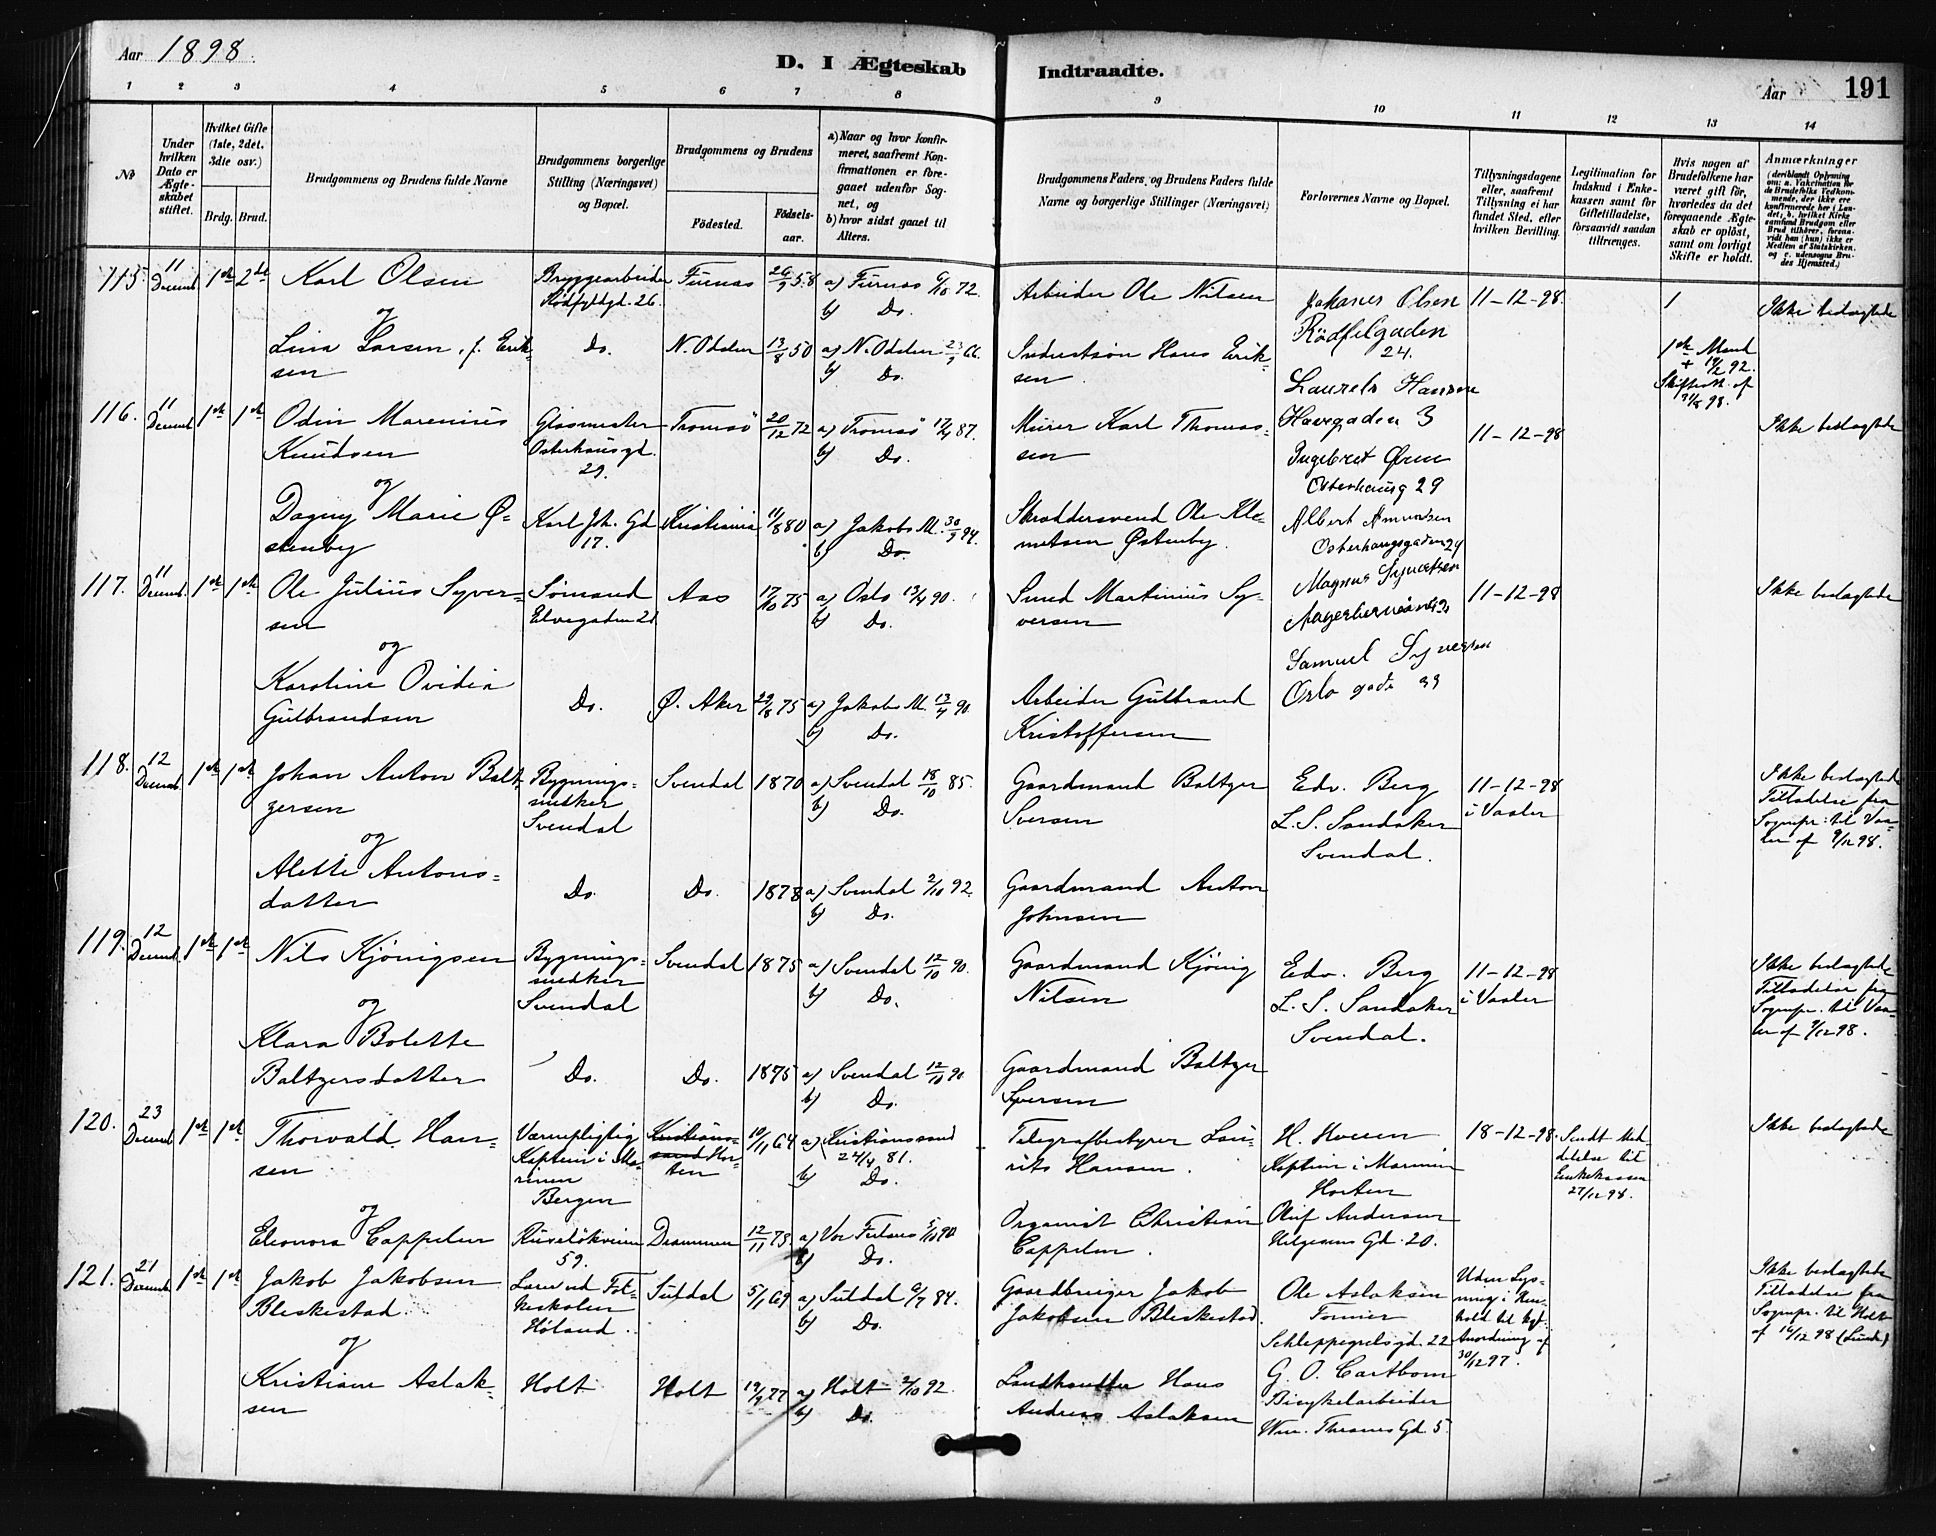 Aar 1898.
D. I Ægteskab Indtraadte.
Aar 191
1 2 3 4 5 6 7 8 9 10 11 12 13 14
No
Under hvilken Dato er Ægteskabet stiftet.
Hvilket Gifte (1ste, 2det, 3die osv.)
Brdg. Brud.
Brudgommens og Brudens fulde Navne
Brudgommens borgerlige Stilling (Næringsvei) og Bopæl.
Brudgommens og Brudens
Födested. Födselsaar.
a) Naar og hvor konfirmeret, saafremt Konfirmationen er foregaaet udenfor Sognet, og
b) hvor sidst gaaet til Alters.
Brudgommens Faders og Brudens Faders fulde Navne og borgerlige Stillinger (Næringsvei)
Forlovernes Navne og Bopæl.
Tillysningsdagene eller, saafremt Tillysning ei har fundet Sted, efter hvilken Bevilling.
Legitimation for Indskud i Enkekassen samt for Giftetilladelse, forsaavidt saadan tiltrænges.
Hvis nogen af Brudefolkene har været gift før, hvorledes da det foregaaende Ægteskab er oplöst, samt om lovligt Skifte er holdt.
Anmærkninger
115. 11 Decemb. 1ste 2det Karl Olsen
Bryggearbeider Rødfyldgd. 26.
Furnæs 58 a) Furnæs 72.
b) Do.
Arbeider Ole Nilsen
Johanes Olsen
Rödfelgaden
24.
11-12-98.
Ikke beslægtede
og
Lina Larsen, f. Eriksen
Do. N. Odalen 13/8 50 a) N. Odalen 66.
b) Do.
Inderstsøn Hans Eriksen
Laurets Hansen
Havegaden 3
1ste Mand + 92.
Skifteatt. af 98.
116. 11 Decemb. 1ste 1ste Odin Marenius Knudsen
Glasmester Osterhausgd. 29.
Tromsö 20/12 72 a) Tromsö 87.
b) Do.
Murer Karl Thomassen
Ingebret Øren
Osterhausg 29
11-12-98
Ikke beslægtede
og
Dagny Marie Østenby
Karl Joh. Gd 17.
Kristiania 11/8 80 a) Jakobs M. 30/9 94.
b) Do.
Skræddersvend Ole Klemetsen Østenby.
Albert Amundsen
Osterhausgaden 29
117. 11 Decemb. 1ste 1ste Ole Julius Syversen
Sømand Elvegaden 21
Aas 17/10 75 a) Oslo 13/4 90.
b) Do.
Smed Martinius Syversen
Magnus Syvertsen
11-12-98
Ikke beslægtede
og
Karoline Ovidia Gulbrandsen
Do. Ø. Aker 29/8 75 a) Jakobs M. 13/4 90.
b) Do.
Arbeider Gulbrand Kristoffersen
Samuel Syversen
Oslo gade 33
118. 12 Decemb. 1ste 1ste Johan Anton Baltzersen
Bygningssnedker Svendal
Svendal 1870 a) Svendal 18/10 85.
b) Do.
Gaardmand Baltzer Iversen
Edv. Berg
L. S. Sandaker
Svendal.
11-12-98 i Vaaler
Ikke beslægtede
Tilladelse fra Sognepr. til Vaaler af 9/12 98.
og
Alette Antonsdatter
Do. Do. 1878 a) Svendal 2/10 92.
b) Do.
Gaardmand Anton Johnsen
119. 12 Decemb. 1ste 1ste Nils Kjönigsen
Bygningssnedker Svendal
Svendal 1875 a) Svendal 12/10 90.
b) Do.
Gaardmand Kjönig Nilsen
Edv. Berg
L. S. Sandaker
Svendal.
11-12-98 i Vaaler
Ikke beslægtede
Tilladelse fra Sognepr. til Vaaler af 9/12 98.
og
Klara Bolette Baltzersdatter
Do. Do. 1875 a) Svendal 12/10 90
b) Do.
Gaardmand Baltzer Iversen
120. 23 Decemb. 1ste 1ste Thorvald Hansen
Værnepligtig Kaptein i Marinen Bergen
Kristianssand Horten 64 a) Kristianssand 24/4 81.
b) Do.
Telegrafbestyrer Laurits Hansen.
H. Hoven
Kaptein i Marinen
Horten
18-12-98.
Sendt Meddelelse til Enkekassen 27/12 98.
Ikke beslægtede
og
Eleonora Cappelen
Ruseløkveien 59.
Drammen 12/11 73 a) Vor Frelsers 5/10 90
b) Do.
Organist Christian Cappelen.
Oluf Andersen
Helgesens Gd. 20.
121. 21 Decemb. 1ste 1ste Jakob Jakobsen Bleskestad
Lærer ved Folkeskolen Høland.
Suldal 5/1 69 a) Suldal 6/7 84.
b) Do.
Gaardbruger Jakob Jakobsen Bleskestad.
Ole Aslaksen
Former
Schleppegrelsgd. 22
Uden Lysning i Henhold til kgl. Anordning af 30/12 97.
Ikke beslægtede
Tilladelse fra Sognepr. til Holt af 16/12 98 (Lunde)
og
Kristiane Aslaksen
Holt Holt 77 a) Holt 2/10 92.
b) Do.
Landhandler Hans Andreas Aslaksen
G. O. Cartbom
Bicykelarbeider
Wm. Thranes Gd. 5.